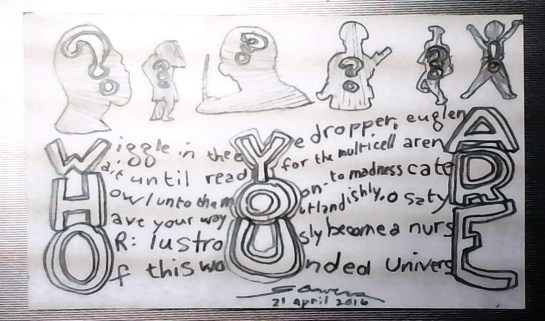 ? ? ? ? ? ?
Wiggle in the eYe dropper, euglenA
Wait until readY for the multicell arenA
Howl unto the mOon- to madness cateR
Have your way Outlandishly, O satyR
OR: lustroUsly become a nursE
Of this woUnded UniversE
21 April 2016